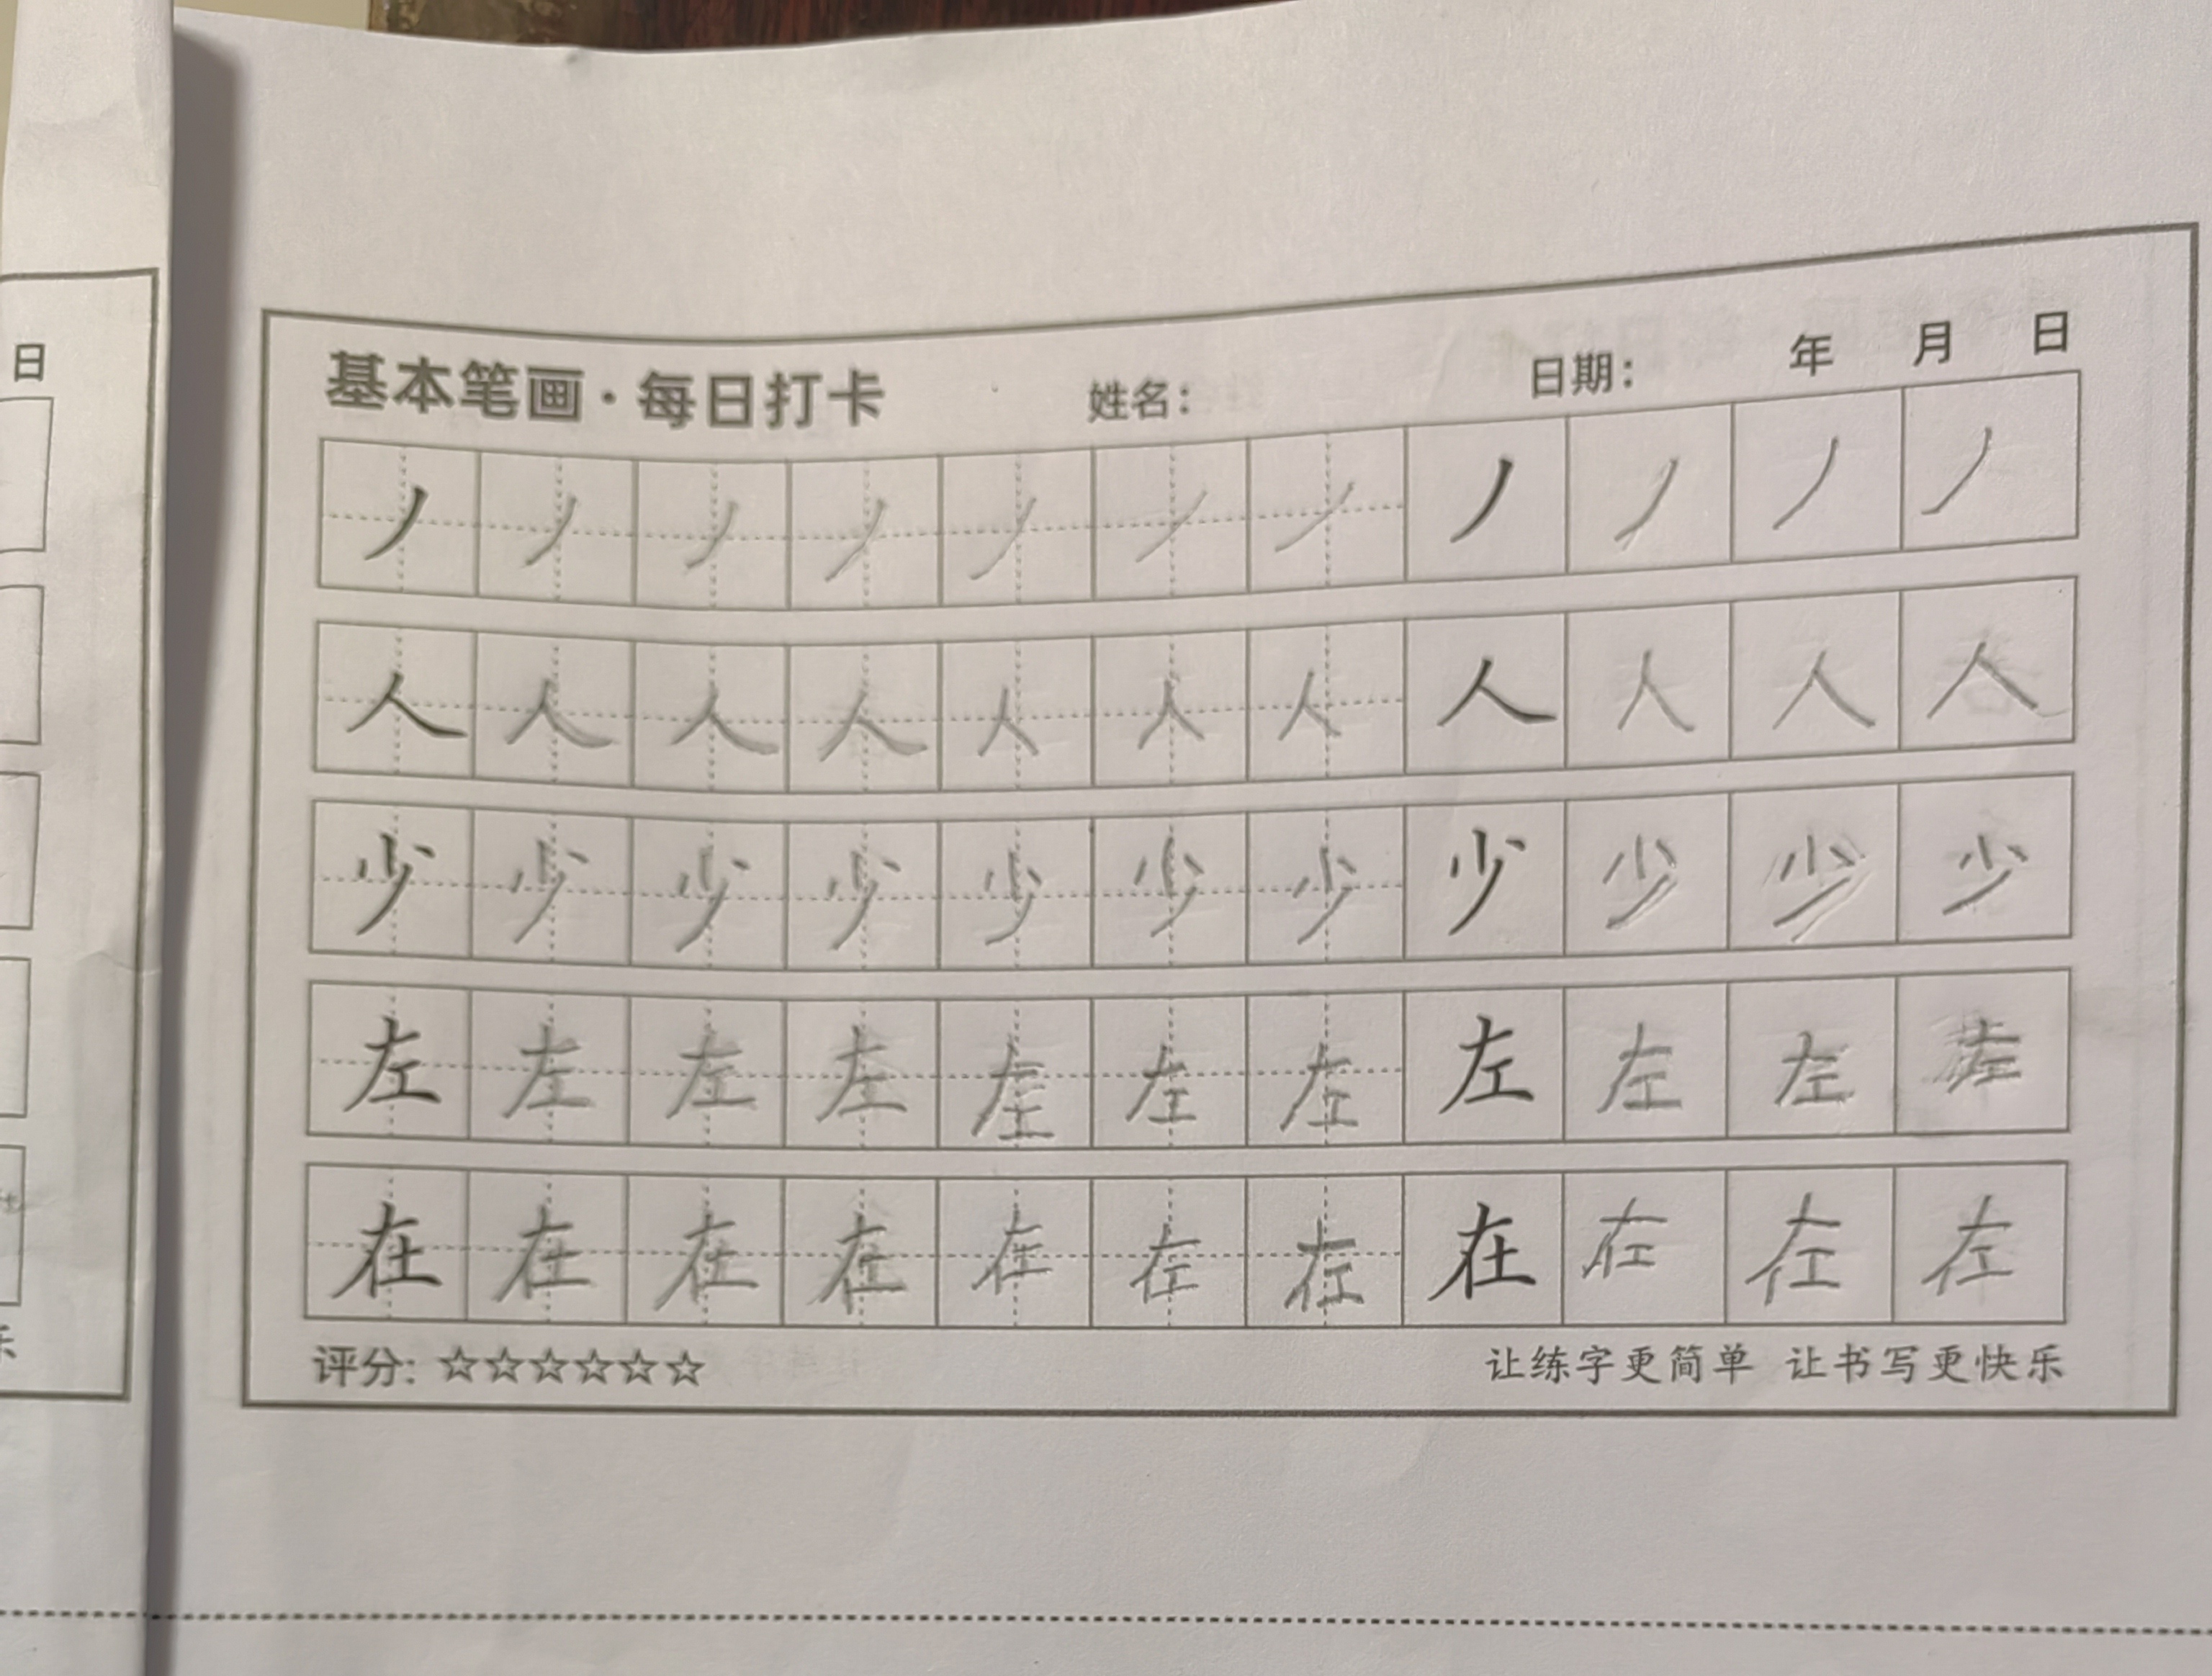 日
基本笔画·每日打卡 姓名： 日期： 年 月 日
丿 丿 丿 丿 丿 丿 丿 丿 丿 丿 丿
人 人 人 人 人 人 人 人 人 人 人
少 少 少 少 少 少 少 少 少 少 少
左 左 左 左 左 左 左 左 左 左 左
在 在 在 在 在 在 在 在 在 在 在
评分: ☆☆☆☆☆☆ 让练字更简单 让书写更快乐
乐